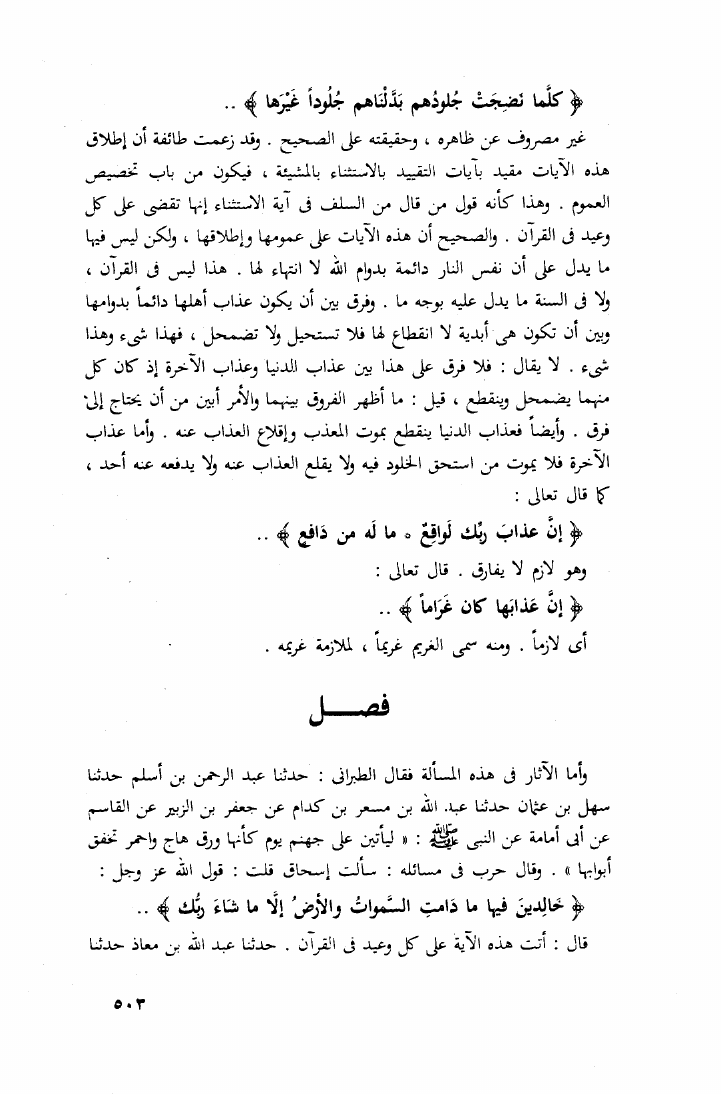 ﴿ كلَّما نَضِجَتْ جُلودُهم بَدَّلْنَاهم جُلُوداً غَيْرَها ﴾ ..
غير مصروف عن ظاهره ، وحقيقته على الصحيح . وقد زعمت طائفة أن إطلاق
هذه الآيات مقيد بآيات التقييد بالاستثناء بالمشيئة ، فيكون من باب تخصيص
العموم . وهذا كأنه قول من قال من السلف فى آية الاستثناء إنها تقضى على كل
وعيد فى القرآن . والصحيح أن هذه الآيات على عمومها وإطلاقها ، ولكن ليس فيها
ما يدل على أن نفس النار دائمة بدوام الله لا انتهاء لها . هذا ليس فى القرآن ،
ولا فى السنة ما يدل عليه بوجه ما . وفرق بين أن يكون عذاب أهلها دائماً بدوامها
وبين أن تكون هى أبدية لا انقطاع لها فلا تستحيل ولا تضمحل ، فهذا شىء وهذا
شىء . لا يقال : فلا فرق على هذا بين عذاب الدنيا وعذاب الآخرة إذ كان كل
منهما يضمحل وينقطع ، قيل : ما أظهر الفروق بينهما والأمر أبين من أن يحتاج إلى
فرق . وأيضاً فعذاب الدنيا ينقطع بموت المعذب وإقلاع العذاب عنه . وأما عذاب
الآخرة فلا يموت من استحق الخلود فيه ولا يقلع العذاب عنه ولا يدفعه عنه أحد ،
كما قال تعالى :
﴿ إنَّ عذابَ ربِّك لَواقِعٌ ه ما لَه من دَافعٍ ﴾ ..
وهو لازم لا يفارق . قال تعالى :
﴿ إنَّ عَذابَها كان غَرَاماً ﴾ ..
أى لازماً . ومنه سمى الغريم غريماً ، لملازمة غريمه .
فصـــل
وأما الآثار فى هذه المسألة فقال الطبرانى : حدثنا عبد الرحمن بن أسلم حدثنا
سهل بن عثمان حدثنا عبد الله بن مسعر بن كدام عن جعفر بن الزبير عن القاسم
عن أبى أمامة عن النبى ﷺ : « ليأتين على جهنم يوم كأنها ورق هاج واحمر تخفق
أبوابها » . وقال حرب فى مسائله : سألت إسحاق قلت : قول الله عز وجل :
﴿ خَالِدينَ فيها ما دَامتِ السَّمواتُ والأرضُ إلَّا ما شَاءَ ربُّك ﴾ ..
قال : أتت هذه الآية على كل وعيد فى القرآن . حدثنا عبد الله بن معاذ حدثنا
٥٠٣